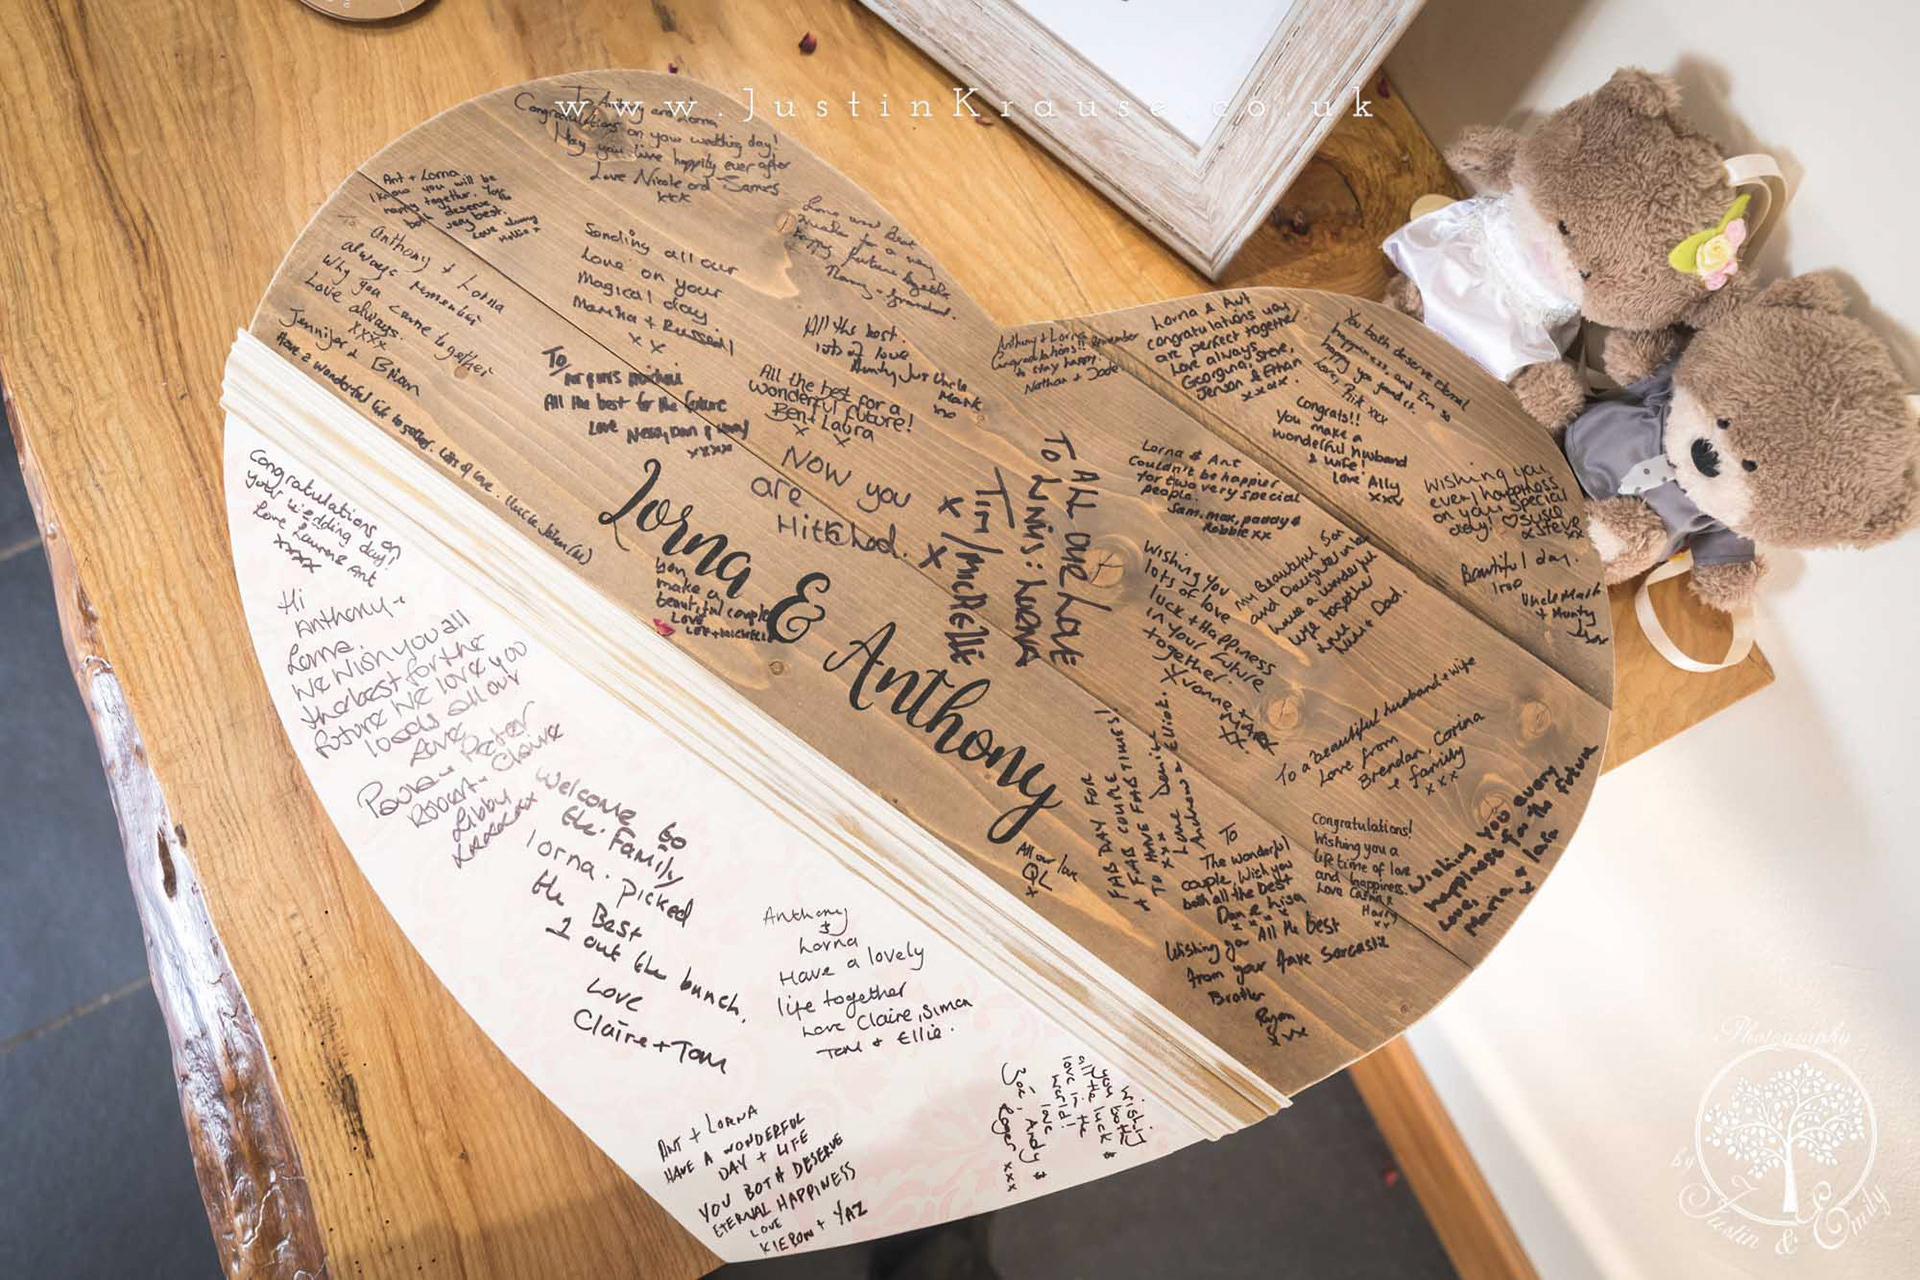 www.JustinKrause.co.uk
To Anthony and Lorna
Congratulations on your wedding day!
May you live happily ever after
Love Nicole and James
xxx
Ant + Lorna
I know you will be
happy together. You
both deserve the
very best.
Love always
Hollie x
To Anthony + Lorna
always remember
why you came together
Love always.
xxxx
Jennifer & Brian
Have a wonderful life together. Lots of love.
Sending all our
Love on your
Magical day.
Marika + Russell
x x
Love and Best
Wishes for a very
happy future together
Nanny + Grandad.
All the best.
lots of love
Aunty Jus Uncle
Mark
To
All the best for the future
Love Ness, Dan &
xxxxx
All the best for a
wonderful future!
Ben + Laura
x x
Now you
are
Hitched.
Lorna & Anthony
you
make a
beautiful couple
Love
ALL OUR LOVE
TIM / MICHELLE
x x
Anthony + Lorna
Congratulations!! Remember
to stay happy!
Nathan + Jade
Lorna & Ant
congratulations you
are perfect together
Love always
Georgina, Steve,
Jenson & Ethan
xxxx.
You both deserve eternal
happiness, and I'm so
happy you found it.
Love, Rik xxx
Congrats!!
You make a
wonderful husband
& wife!
love Ally
xxx
Lorna & Ant
Couldn't be happier
for two very special
people.
Sam, max, paddy &
Robbie xx
Wishing you
every happiness
on your special
day! ♡ Susie
& Steve
xx
Beautiful day.
Uncle Mark
+ Aunty
Wishing You
lots of love
luck + Happiness
in Your future
together.
Yvonne + Mark
xx
My Beautiful Son
and Daughter in law
have a wonderful
life together
Love
Mum + Dad.
To a beautiful husband + wife
Love from
Brendan, Corina
& family
xxx
FAB DAY FOR
A FAB COUPLE
TO HAVE FAB TIMES!
xxx
Love Denise,
Andrew & Elliot.
All our love
QL
x
To
The wonderful
couple, Wish you
both all the best
Dan & Lisa
x x x
Congratulations!
Wishing you a
lifetime of love
and happiness.
Love Carin &
Harry
xx
Wishing you every
happiness for the future
Love,
Maria & Iain
x
Wishing you All the best
from your fave Sarcastic
Brother
Ryan
xxx
Congratulations on
your wedding day!
Love Laura & Ant
xxxx
Hi
Anthony +
Lorna.
We wish you all
the best for the
future We love you
loads all our
love
Paula + Peter
Robert + Claire
Libby
xxxxxx
Welcome to
the Family
lorna. Picked
the Best
1 out the bunch.
Love
Claire + Tom
Anthony
&
Lorna
Have a lovely
life together
Love Claire, Simon
Tom & Ellie.
ANT + LORNA
HAVE A WONDERFUL
DAY + LIFE
YOU BOTH DESERVE
ETERNAL HAPPINESS
LOVE
KIERON + YAZ
Wishing
you both
all the luck &
love in the
world!!
love
Zoë, Andy &
Roger xxx
Photography
by
Justin & Emily